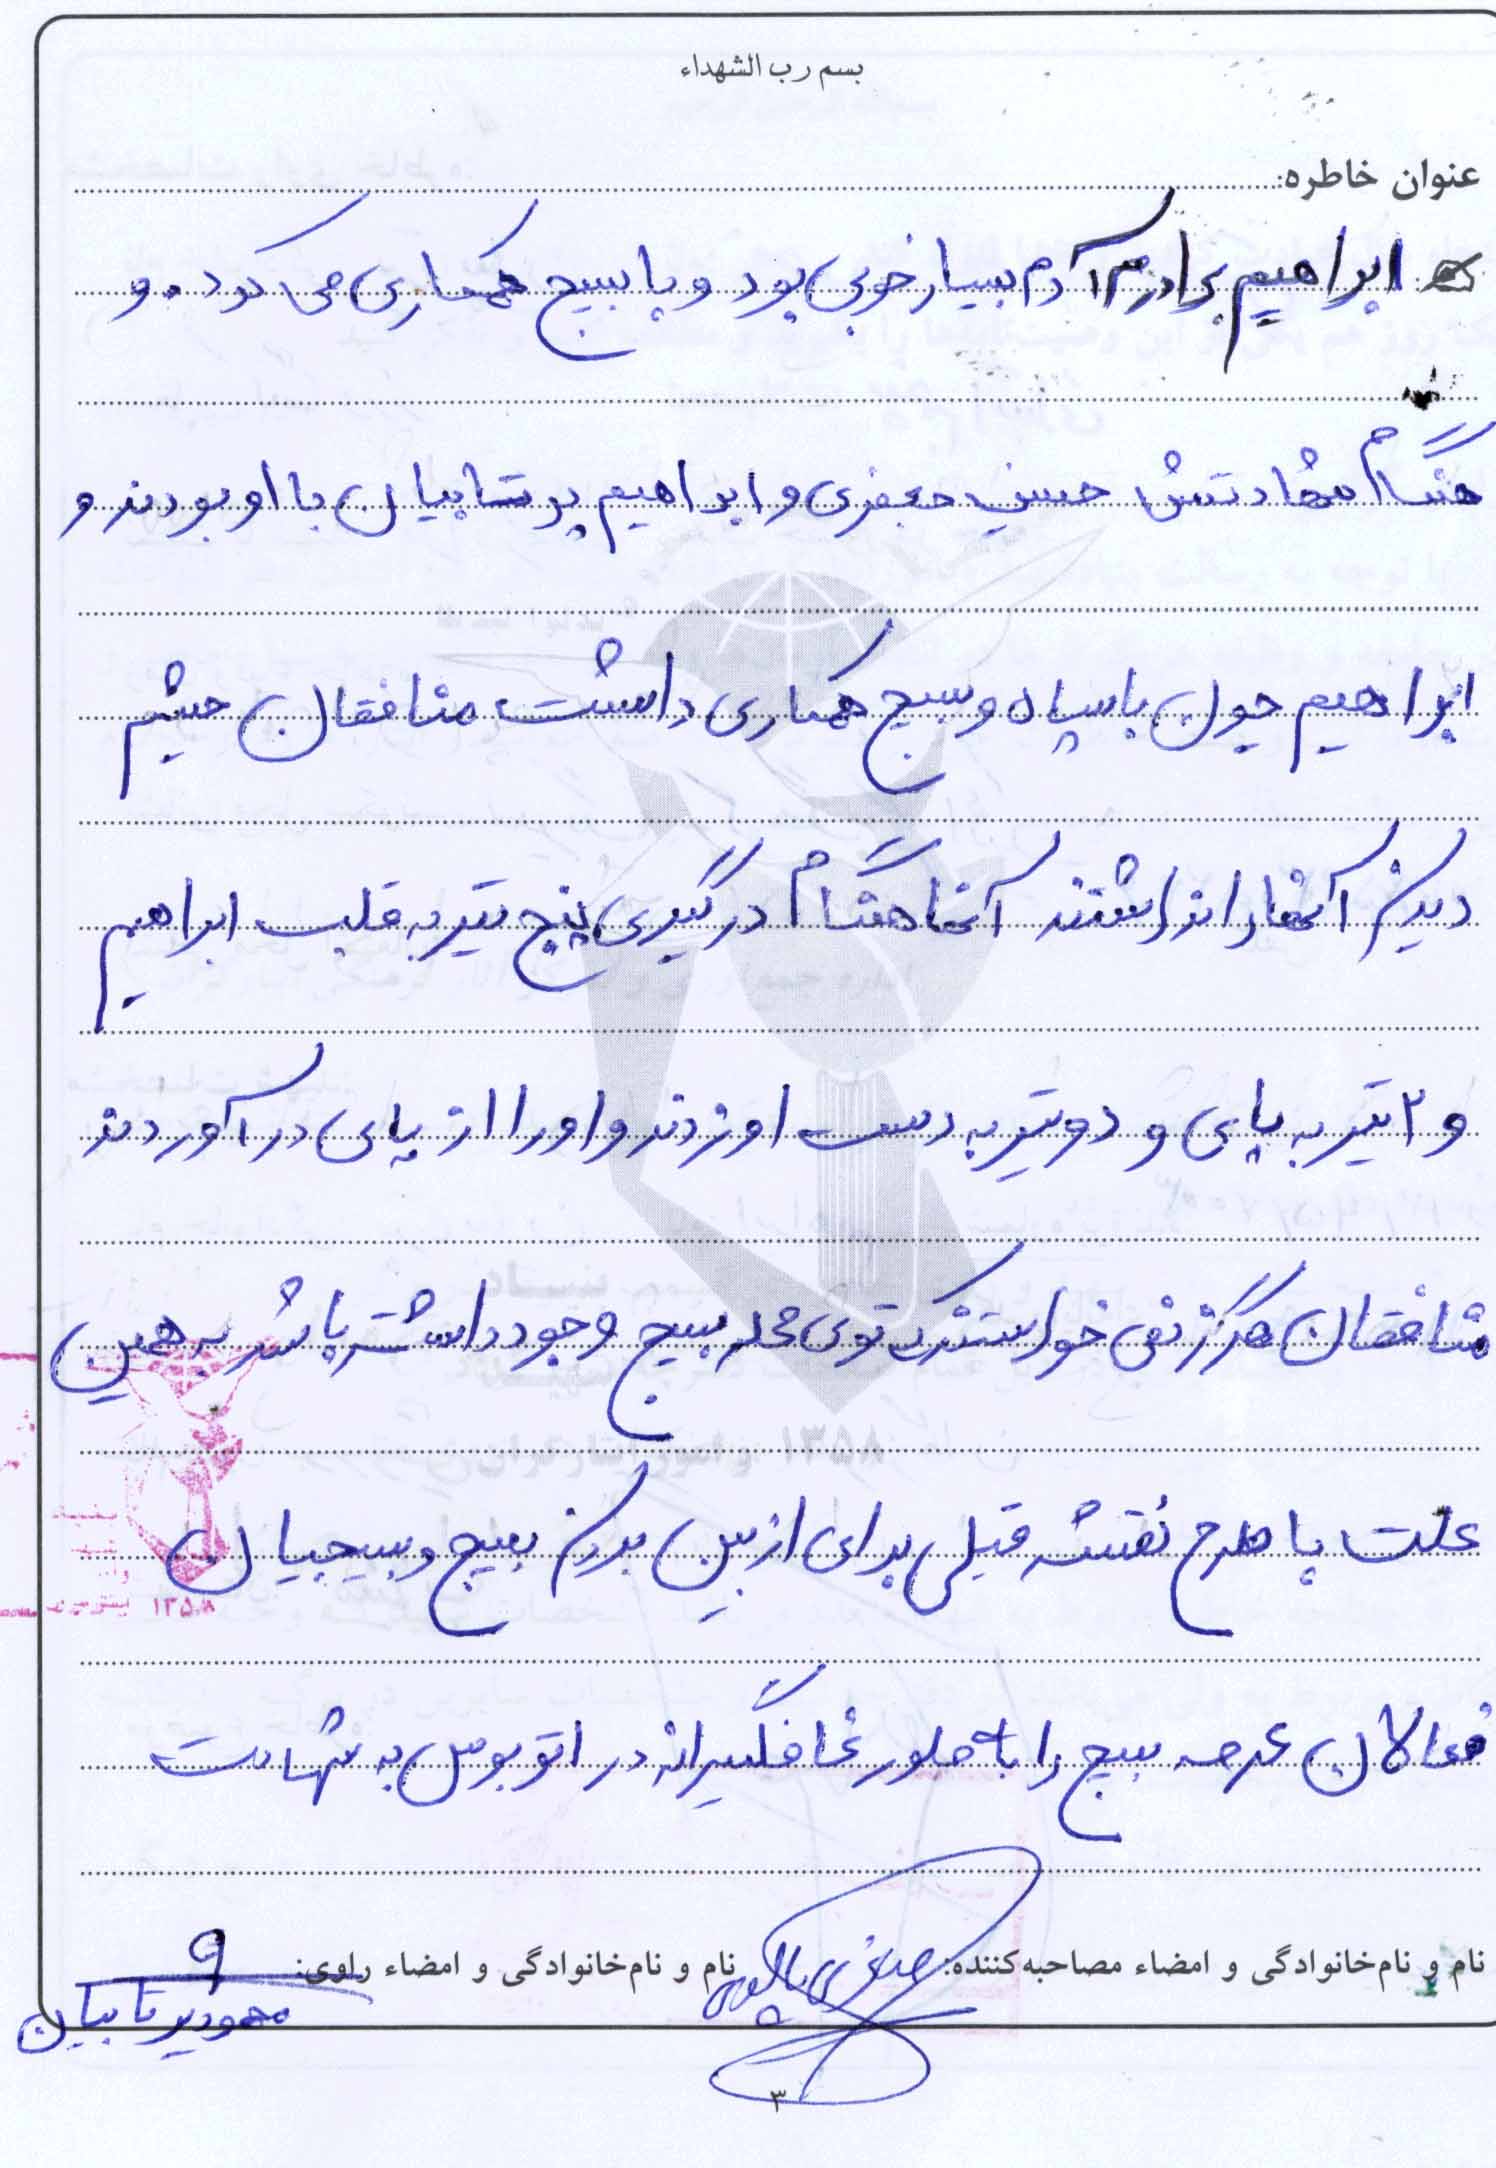 بسم رب الشهداء
عنوان خاطره:
ابراهیم برادرم آدم بسیار خوبی بود و با بسیج همکاری می کرد. و
هنگام شهادتش حسین جعفری و ابراهیم پرتابیان با او بودند و
ابراهیم چون با سپاه و بسیج همکاری داشت، منافقان چشم
دیدن آنها را نداشتند آنها هنگام درگیری پنج تیر به قلب ابراهیم
و ۲ تیر به پای و دو تیر به دست او زدند و او را از پای در آوردند
منافقان هرگز نمی خواستند که توی محله بسیج وجود داشته باشد به همین
علت با طرح نقشه قبلی برای از بین بردن بسیج و بسیجیان
فعالان عرصه بسیج را با طور غافلگیرانه در اتوبوس به شهادت
نام و نام‌خانوادگی و امضاء مصاحبه‌کننده: نام و نام‌خانوادگی و امضاء راوی:
محمود پرتابیان
۱۳۵۸
۳